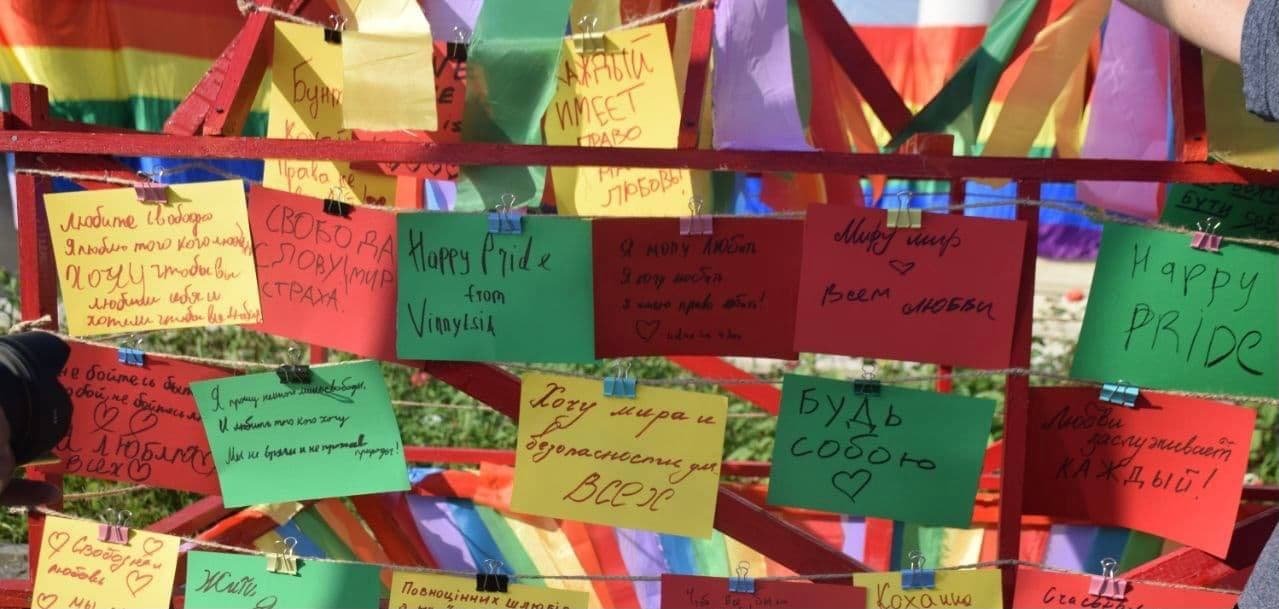 Бунт
VE
КАЖДЫЙ
ИМЕЕТ
ПРАВО
НА
ЛЮБОВЬ!
Права не
Любите свободно
Я люблю того кого люблю
ХОЧУ чтобы вы
любили себя и
хотели чтобы вы
СВОБОДА
СЛОВУ МИР
СТРАХА.
Happy Pride
from
Vinnytsia
Я могу любить
Я хочу любить
Я имею право любить!
Миру мир
Всем любви
БУТИ СОБОЮ
Happy
PRIDE
не бойтесь быть
собой, не бойтесь
И ЛЮБЛЮ
ВСЕХ
Я прошу немного свободы,
И любить того кого хочу
Мы не враги и не против природы!
Хочу мира и
безопасности для
ВСЕХ
БУДЬ
СОБОЮ
Любви
заслуживает
КАЖДЫЙ!
Свободная
любовь
мы
Жить
Повноцінних шлюбів
Кохання
Счастья